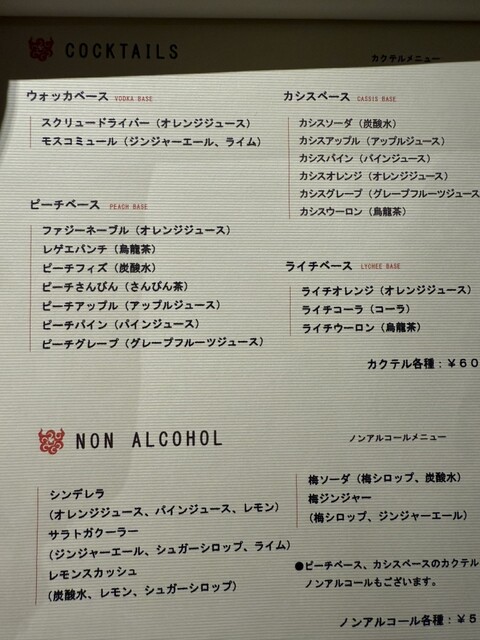 COCKTAILS
カクテルメニュー
ウォッカベース VODKA BASE
スクリュードライバー（オレンジジュース）
モスコミュール（ジンジャーエール、ライム）
ピーチベース PEACH BASE
ファジーネーブル（オレンジジュース）
レゲエパンチ（烏龍茶）
ピーチフィズ（炭酸水）
ピーチさんぴん（さんぴん茶）
ピーチアップル（アップルジュース）
ピーチパイン（パインジュース）
ピーチグレープ（グレープフルーツジュース）
カシスベース CASSIS BASE
カシスソーダ（炭酸水）
カシスアップル（アップルジュース）
カシスパイン（パインジュース）
カシスオレンジ（オレンジジュース）
カシスグレープ（グレープフルーツジュース
カシスウーロン（烏龍茶）
ライチベース LYCHEE BASE
ライチオレンジ（オレンジジュース）
ライチコーラ（コーラ）
ライチウーロン（烏龍茶）
カクテル各種：￥60
NON ALCOHOL
ノンアルコールメニュー
シンデレラ
（オレンジジュース、パインジュース、レモン）
サラトガクーラー
（ジンジャーエール、シュガーシロップ、ライム）
レモンスカッシュ
（炭酸水、レモン、シュガーシロップ）
梅ソーダ（梅シロップ、炭酸水）
梅ジンジャー
（梅シロップ、ジンジャーエール）
●ピーチベース、カシスベースのカクテル
ノンアルコールもございます。
ノンアルコール各種：￥5